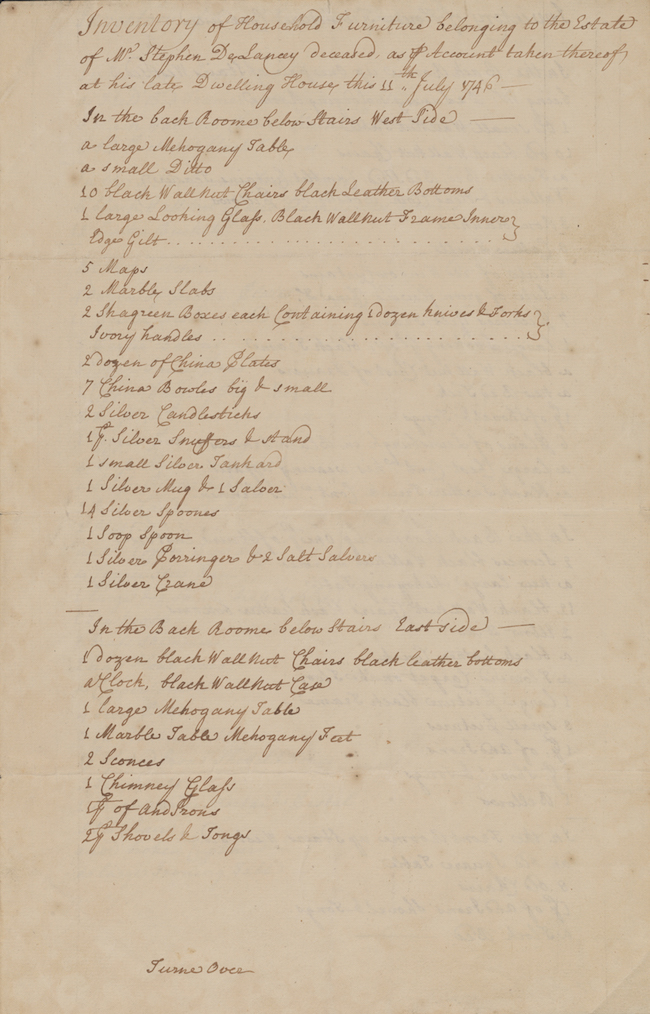 Inventory of Household Furniture belonging to the Estate
of Mr. Stephen De Lancey deceased, as ⅌ Account taken thereof
at his late Dwelling House, this 11th. July 1746 —
In the back Roome below Stairs West Side —
a large Mehogany Table
a small Ditto
10 black Wallnut Chairs black Leather Bottoms
1 large Looking Glass, Black Wallnut Frame Inner
Edge Gilt
5 Maps
2 Marble Slabs
2 Shagreen Boxes each Containing 1 dozen knives & Forks
Ivory handles
2 dozen of China Plates
7 China Bowles big & small
2 Silver Candlesticks
1 pr. Silver Snuffers & stand
1 small Silver Tankard
1 Silver Mug & 1 Salver
14 Silver Spoones
1 Soop Spoon
1 Silver Porringer & 2 Salt Salvers
1 Silver Crane
In the Back Roome below Stairs East side —
1 dozen black Wallnut Chairs black leather bottoms
a Clock, black Wallnut Case
1 large Mehogany Table
1 Marble Table Mehogany Feet
2 Sconces
1 Chimney Glass
1 pr of Andirons
2 pr Shovels & Tongs
Turne Over